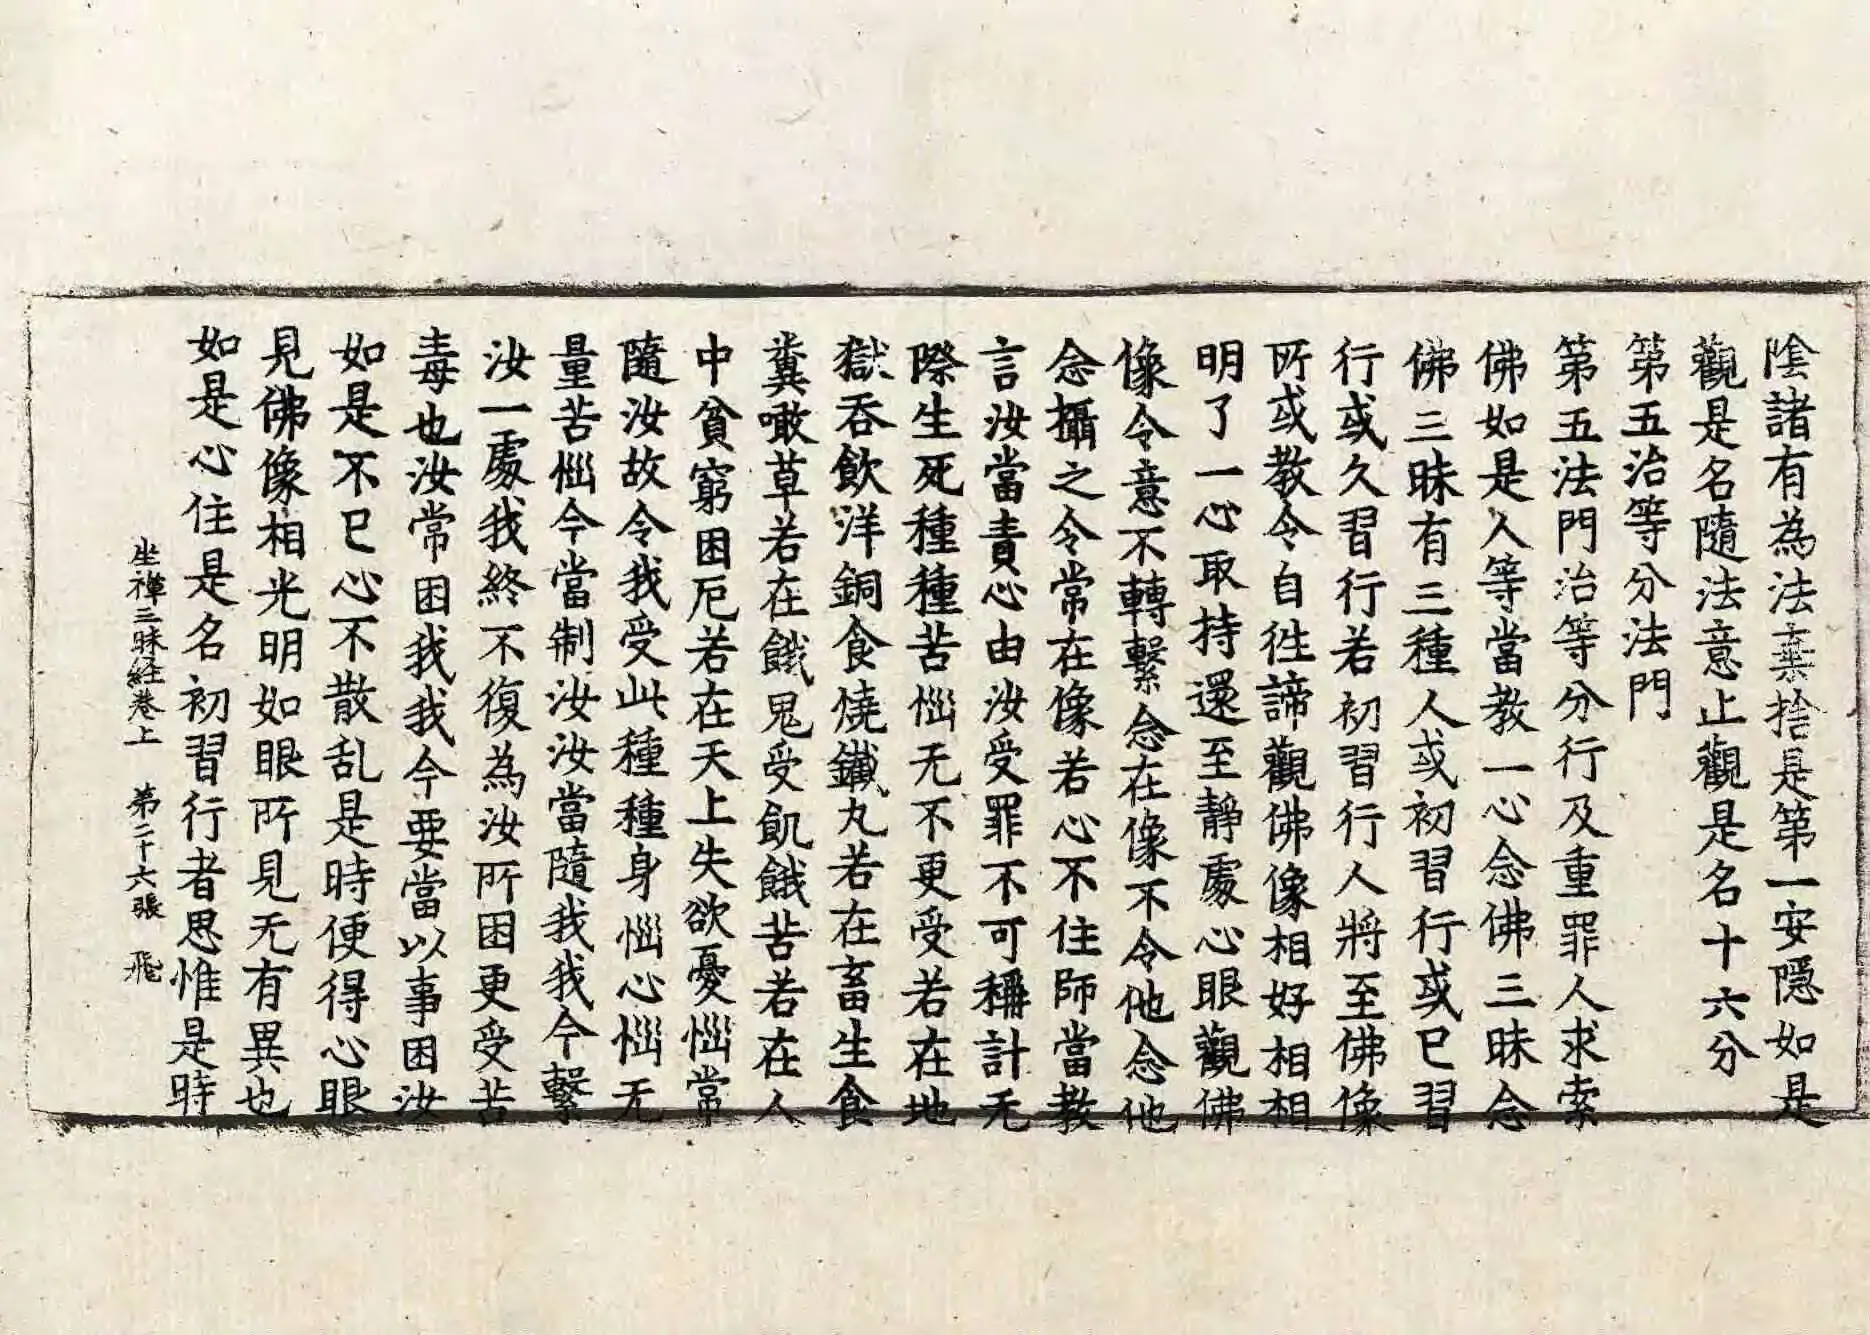 陰諸有為法棄捨是第一安隱如是
觀是名隨法意止觀是名十六分
第五治等分法門
第五法門治等分行及重罪人求索
佛如是人等當教一心念佛三昧念
佛三昧有三種人或初習行或已習
行或久習行若初習行人將至佛像
所或教令自徃諦觀佛像相好相相
明了一心取持還至靜處心眼觀佛
像令意不轉繫念在像不令他念他
念攝之令常在像若心不住師當教
言汝當責心由汝受罪不可稱計无
際生死種種苦惱无不更受若在地
獄吞飲洋銅食燒鐵丸若在畜生食
糞噉草若在餓鬼受飢餓苦若在人
中貧窮困厄若在天上失欲憂惱常
隨汝故令我受此種種身惱心惱无
量苦惱今當制汝汝當隨我我今繫
汝一處我終不復為汝所困更受苦
毒也汝常困我我今要當以事困汝
如是不已心不散乱是時便得心眼
見佛像相光明如眼所見无有異也
如是心住是名初習行者思惟是時
坐禪三昧経卷上 第二十六張 飛